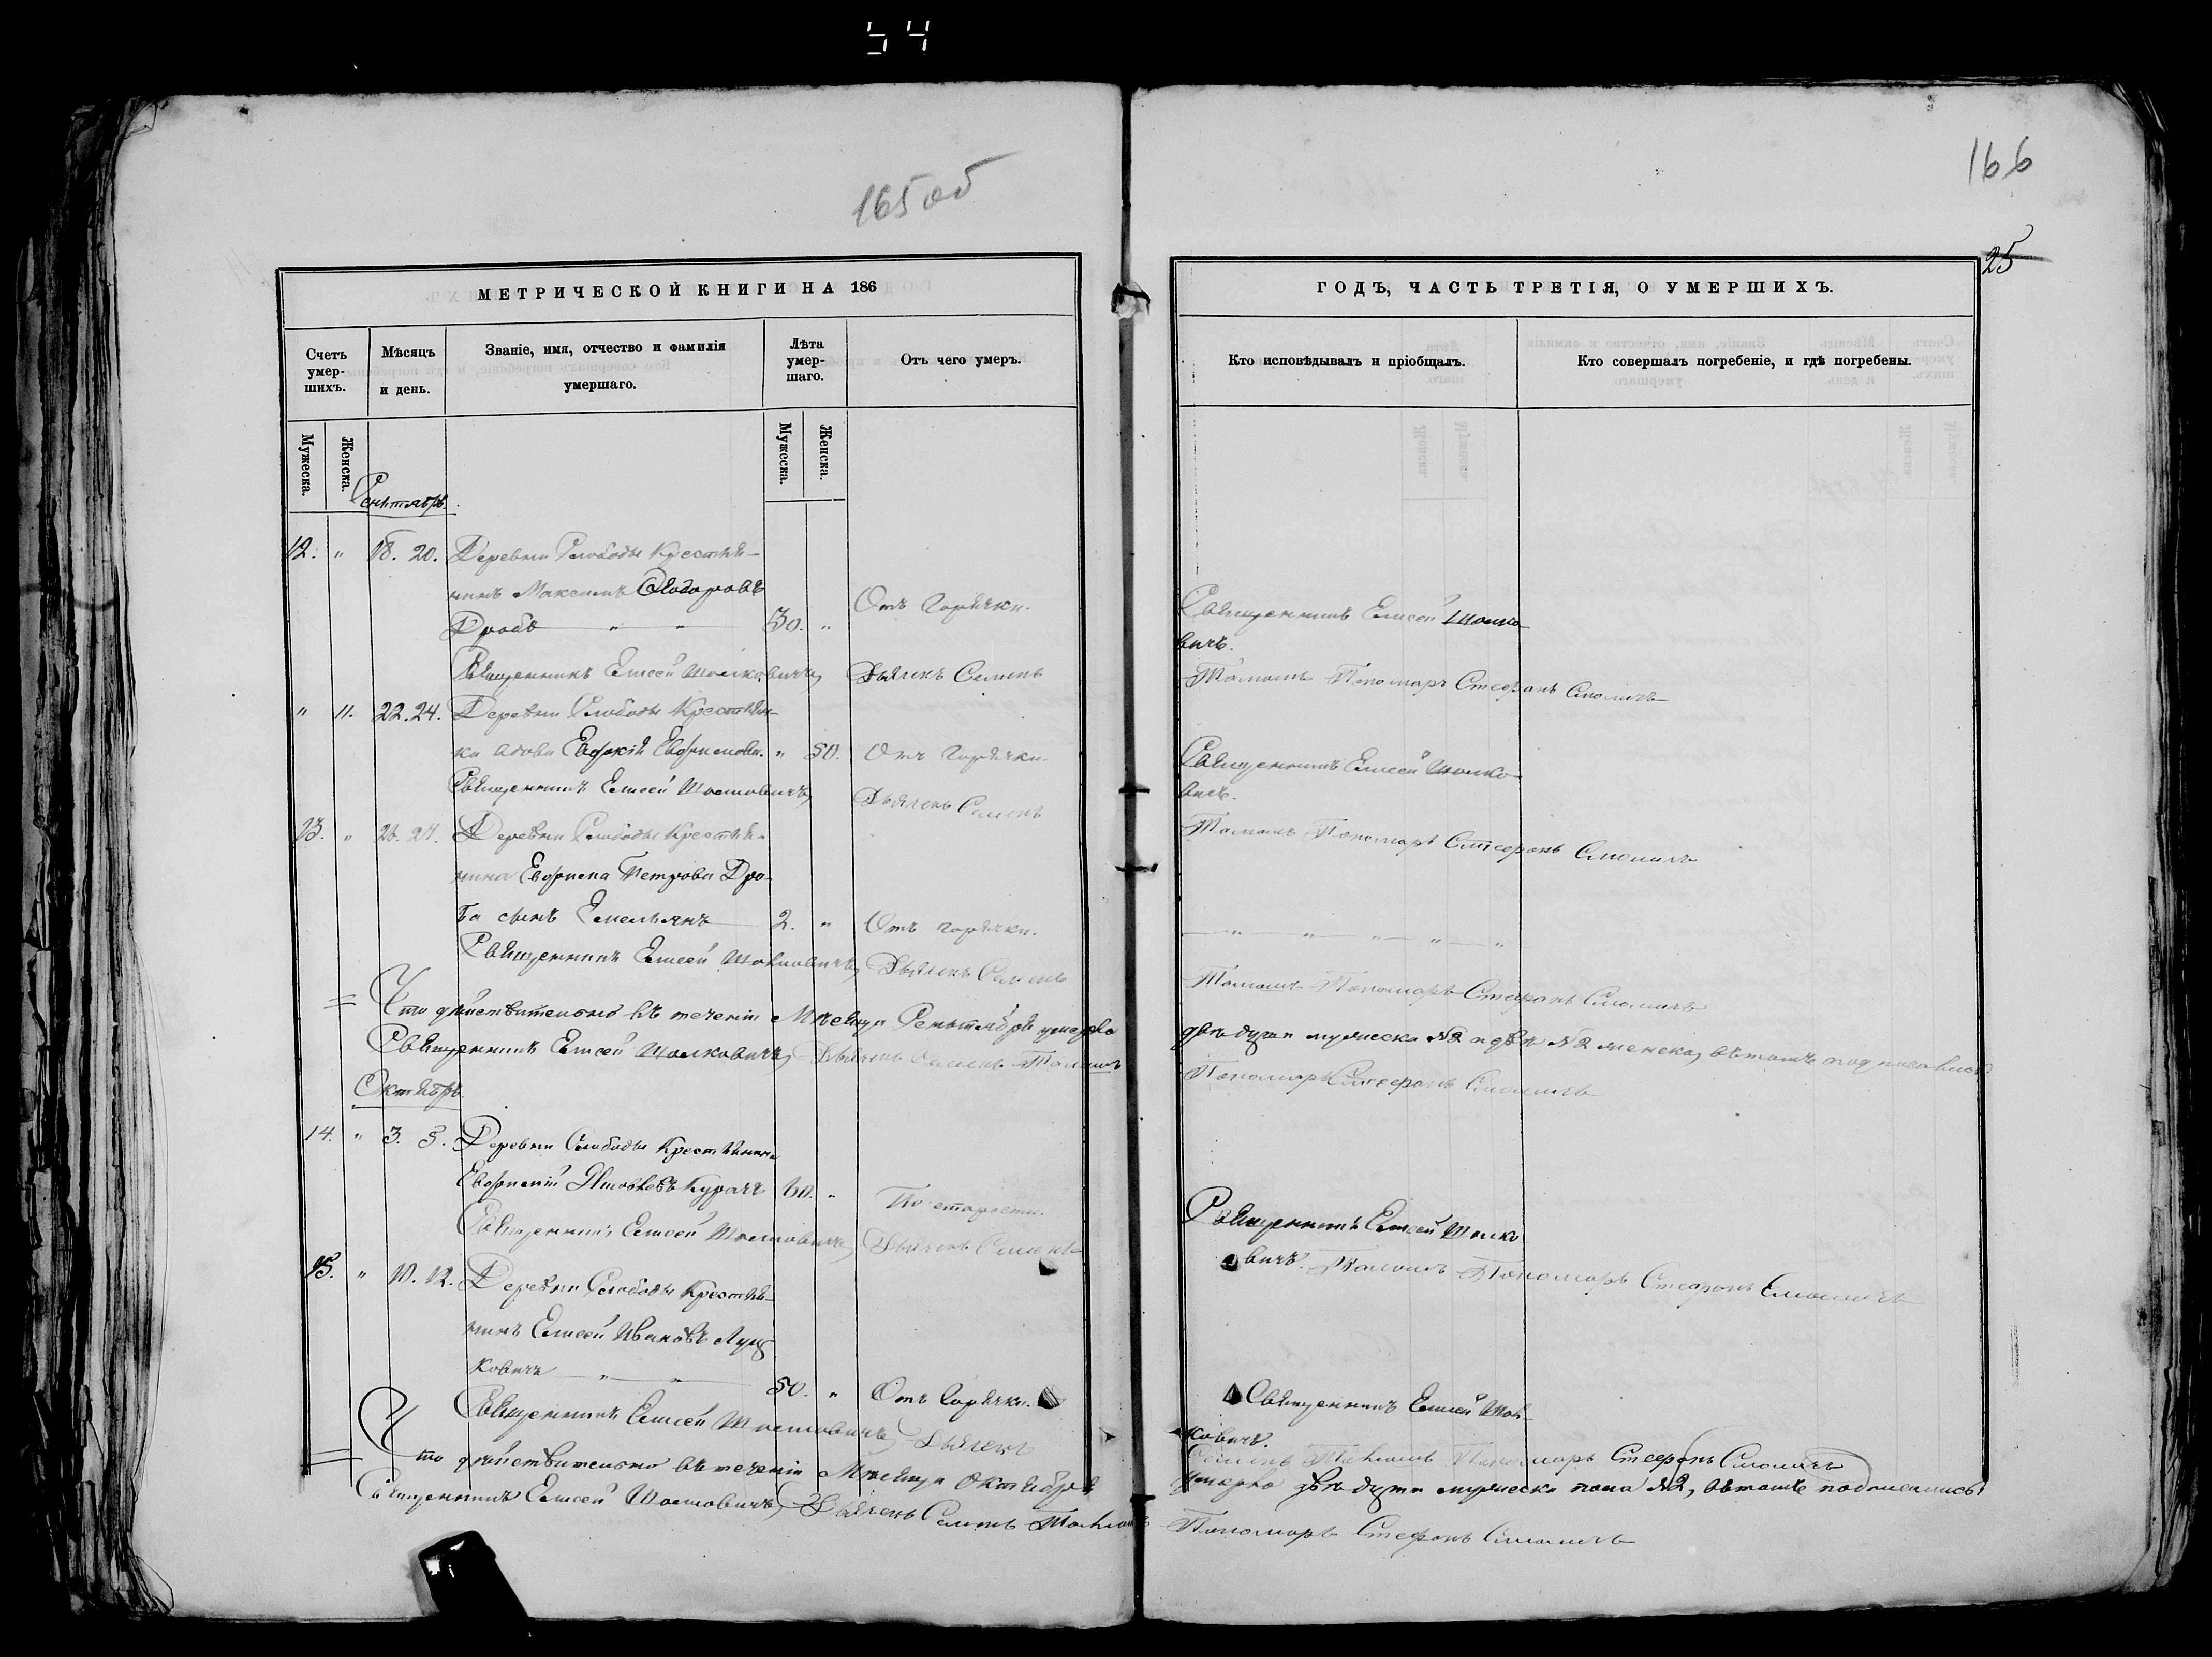 54
165 об
166
25
МЕТРИЧЕСКОЙ КНИГИ НА 186
ГОДЪ, ЧАСТЬ ТРЕТІЯ, О УМЕРШИХЪ.
Счетъ умер-шихъ.
Мѣсяцъ и день.
Званіе, имя, отчество и фамилія умершаго.
Лѣта умер-шаго.
Отъ чего умеръ.
Кто исповѣдывалъ и пріобщалъ.
Кто совершалъ погребеніе, и гдѣ погребены.
Мужеска.
Женска.
Мужеска.
Женска.
Сентябрь.
12. " 18. 20. Деревни Слободы Крестья-
нинъ Максимъ Ѳодоровъ
Дробъ " " 30. " Отъ горячки. Священникъ Елисей
вичъ.
Священникъ Елисей Дьячекъ Семенъ Пономарь Стефанъ Смоличъ
" 11. 22. 24. Деревни Слободы Крестьян-
ка вдова Евфимова. " 50. Отъ горячки. Священникъ Елисей
вичъ.
Священникъ Елисей Дьячекъ Семенъ Пономарь Стефанъ Смоличъ
13. " 26. 27. Деревни Слободы Крестья-
нина Евфима Петрова Дро-
ба сынъ Емельянъ 2. " Отъ горячки. " " " " "
Священникъ Елисей Дьячекъ Семенъ Пономарь Стефанъ Смоличъ
= Что дѣйствительно въ теченіи Мѣсяца Сентября умерло двѣ души мужеска №2 и женска, въ томъ подписались
Священникъ Елисей Дьячекъ Семенъ Пономарь Стефанъ Смоличъ
Октябрь
14. " 3. 5. Деревни Слободы Крестьянинъ
Евфимій 60. " По старости. Священникъ Елисей
вичъ.
Священникъ Елисей Дьячекъ Семенъ Пономарь Стефанъ Смоличъ
15. " 10. 12. Деревни Слободы Крестья-
нинъ Елисей Ивановъ Луц
ковичъ " " 50. " Отъ Горячки. Священникъ Елисей
ковичъ.
Священникъ Елисей Дьячекъ Семенъ Пономарь Стефанъ Смоличъ
= Что дѣйствительно въ теченіи Мѣсяца Октября умерло двѣ души мужеска пола №2, въ томъ подписались
Священникъ Елисей Дьячекъ Семенъ Пономарь Стефанъ Смоличъ